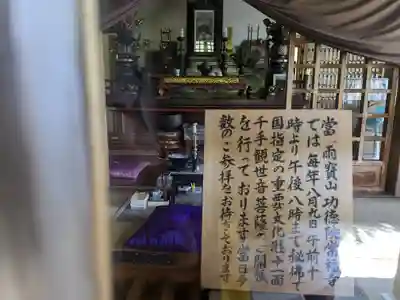 當 雨寶山 功德院常福寺
では 毎年八月九日 午前十
時より午後八時まで秘佛で
国指定の重要文化財 十一面
千手観世音菩薩のご開帳
を行っております 当日多
数のご参拝をお待ちしております